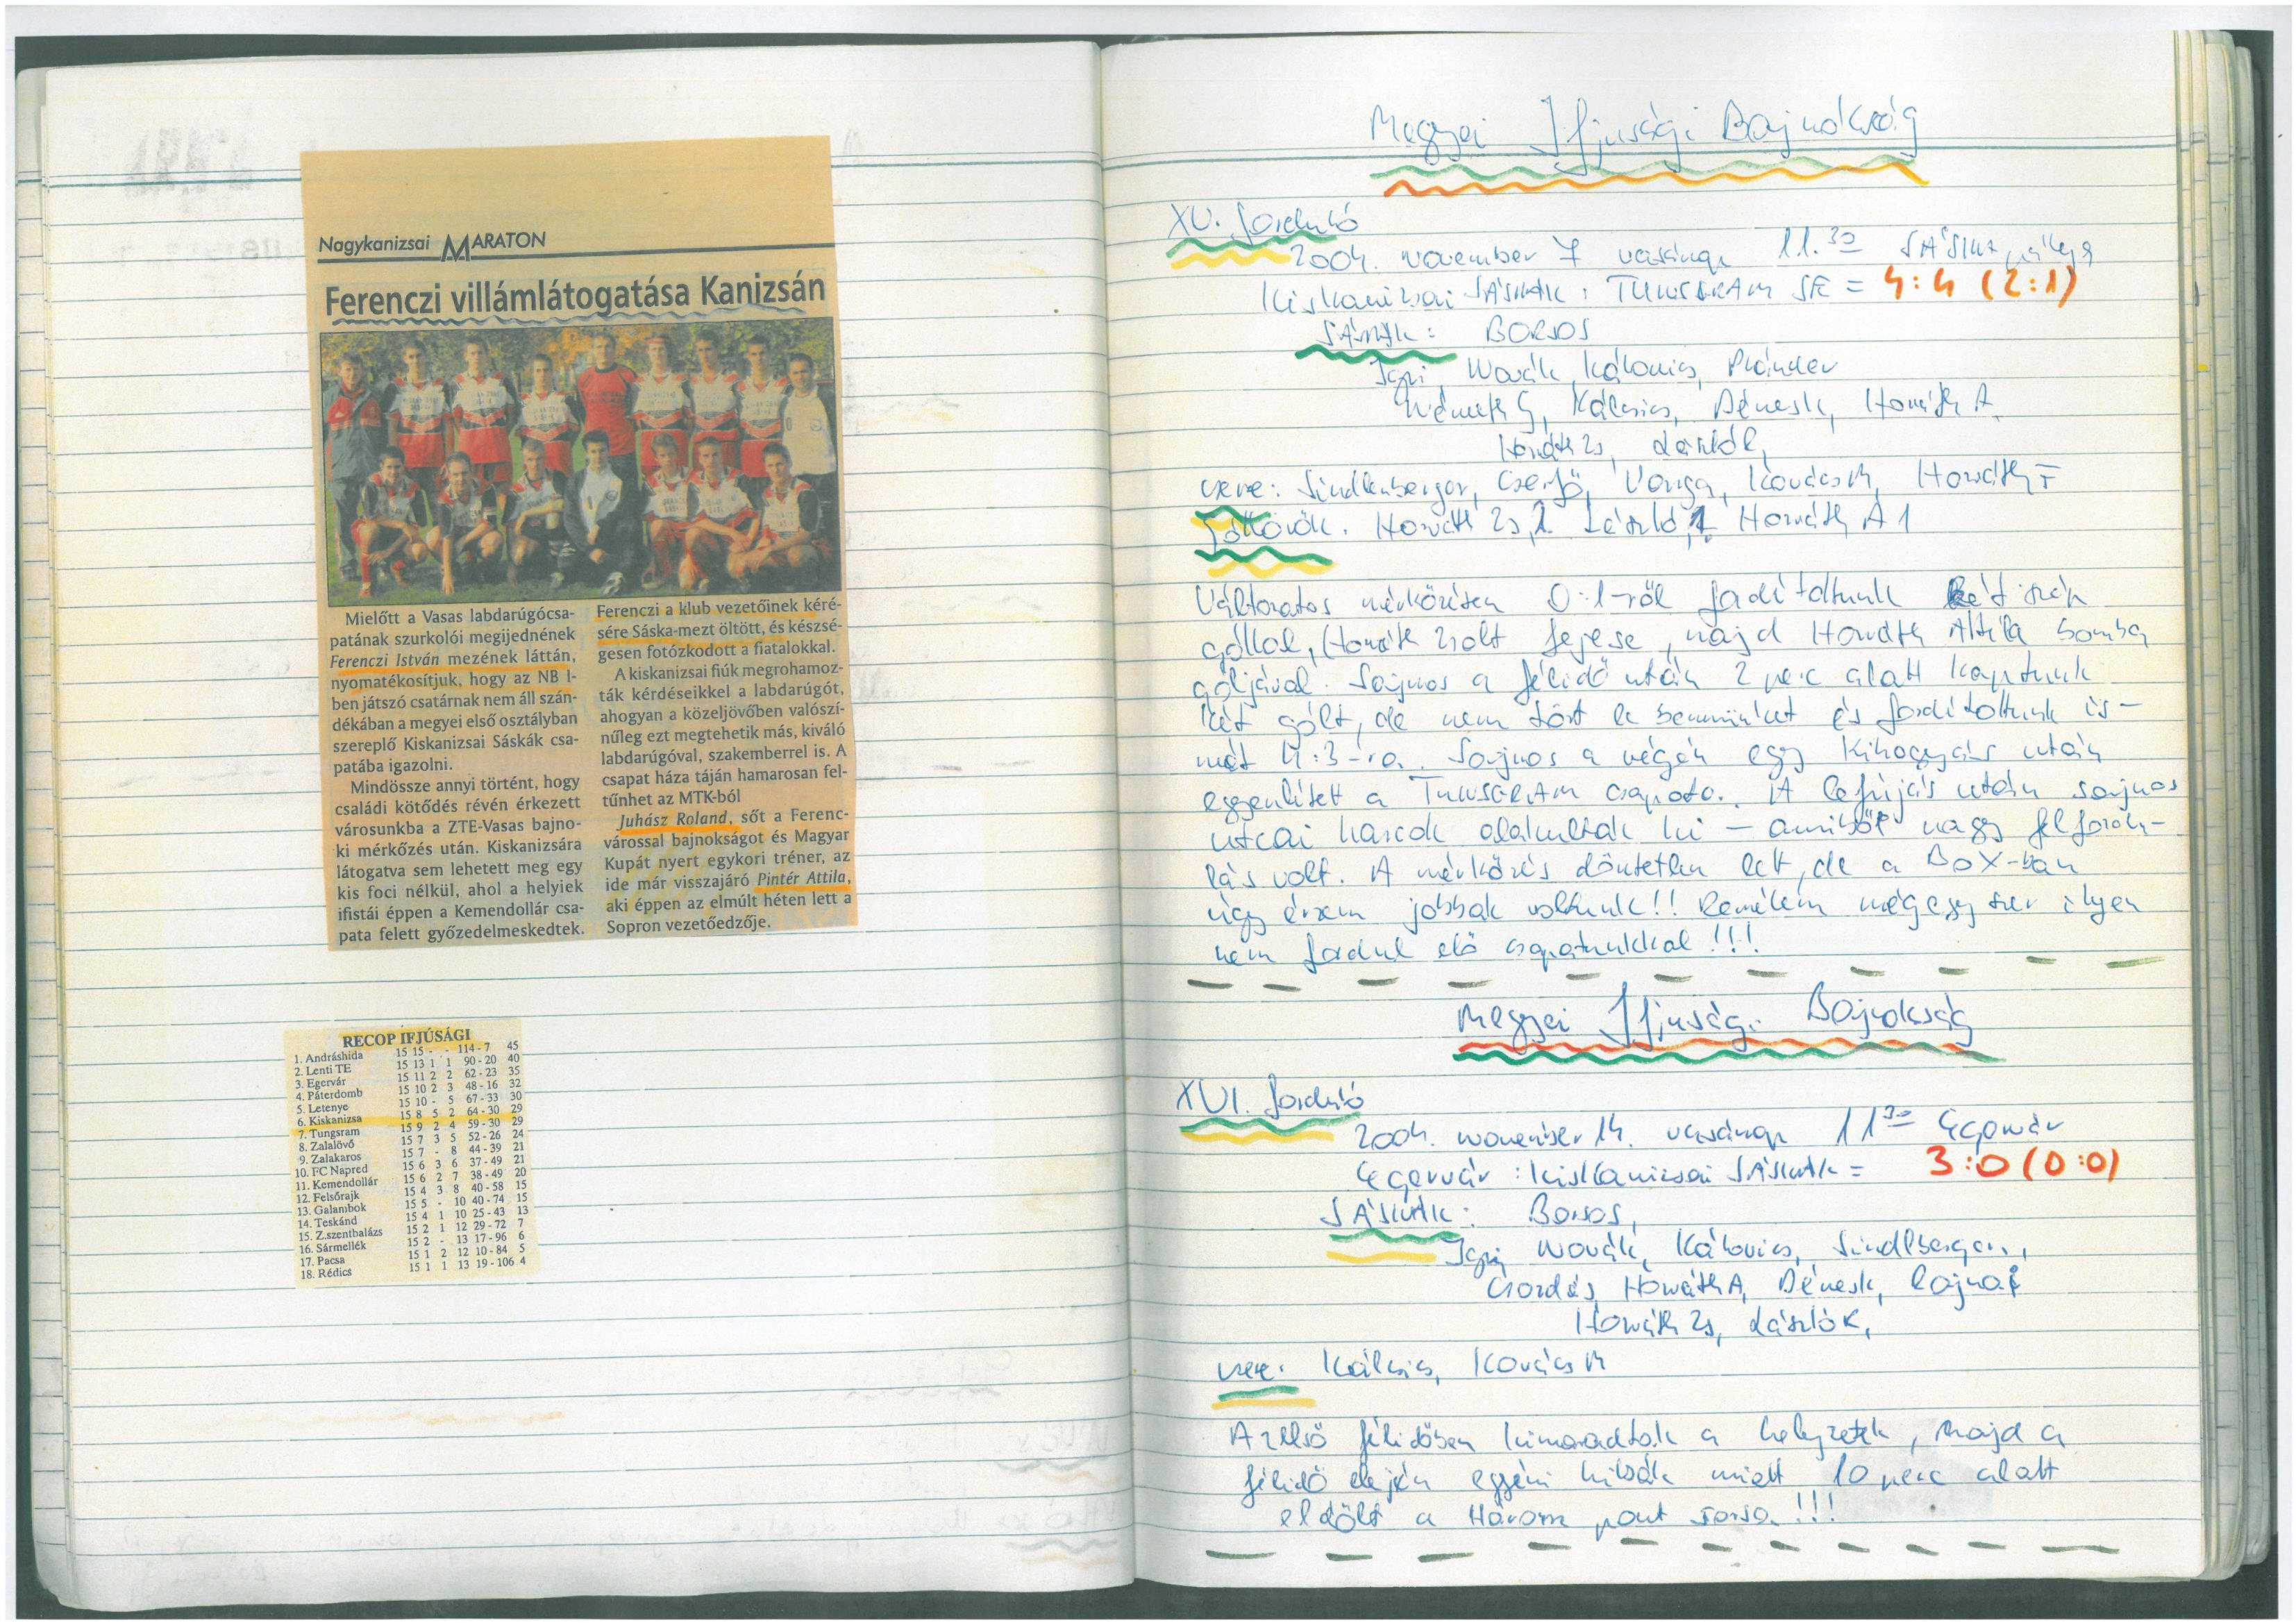 Nagykanizsai MARATON
Ferenczi villámlátogatása Kanizsán
Mielőtt a Vasas labdarúgócsa-
patának szurkolói megijednének
Ferenczi István mezének láttán,
nyomatékosítjuk, hogy az NB I-
ben játszó csatárnak nem áll szán-
dékában a megyei első osztályban
szereplő Kiskanizsai Sáskák csa-
patába igazolni.
Mindössze annyi történt, hogy
családi kötődés révén érkezett
városunkba a ZTE-Vasas bajno-
ki mérkőzés után. Kiskanizsára
látogatva sem lehetett meg egy
kis foci nélkül, ahol a helyiek
ifistái éppen a Kemendollár csa-
pata felett győzedelmeskedtek.
Ferenczi a klub vezetőinek kéré-
sére Sáska-mezt öltött, és készsé-
gesen fotózkodott a fiatalokkal.
A kiskanizsai fiúk megrohamoz-
ták kérdéseikkel a labdarúgót,
ahogyan a közeljövőben valószí-
nűleg ezt megtehetik más, kiváló
labdarúgóval, szakemberrel is. A
csapat háza táján hamarosan fel-
tűnhet az MTK-ból
Juhász Roland, sőt a Ferenc-
várossal bajnokságot és Magyar
Kupát nyert egykori tréner, az
ide már visszajáró Pintér Attila,
aki éppen az elmúlt héten lett a
Sopron vezetőedzője.
RECOP IFJÚSÁGI
1. Andráshida 15 15 - - 114-7 45
2. Lenti TE 15 13 1 1 90-20 40
3. Egervár 15 11 2 2 62-23 35
4. Páterdomb 15 10 2 3 48-16 32
5. Letenye 15 10 - 5 67-33 30
6. Kiskanizsa 15 8 5 2 64-30 29
7. Tungsram 15 9 2 4 59-30 29
8. Zalalövő 15 7 3 5 52-26 24
9. Zalakaros 15 7 - 8 44-39 21
10. FC Napred 15 6 3 6 37-49 21
11. Kemendollár 15 6 2 7 38-49 20
12. Felsőrajk 15 4 3 8 40-58 15
13. Galambok 15 5 - 10 40-74 15
14. Teskánd 15 4 1 10 25-43 13
15. Z.szentbalázs 15 2 1 12 29-72 7
16. Sármellék 15 2 - 13 17-96 6
17. Pacsa 15 1 2 12 10-84 5
18. Rédics 15 1 1 13 19-106 4
Megyei Ifjusági Bajnokság
XV. forduló
2004. november 7 vasárnap 11.30 SÁSKA pálya
Kiskanizsai SÁSKÁK : TUNGSRAM SE = 4:4 (2:1)
SÁSKÁK: BORSOS
Novák, Kálovics, Plánder
Németh G, Kálcsics, Dénes K, Horváth A
Horváth Zs, László K,
csere: Sindlenberger, Cserfő, Varga, Kovács M, Horváth F
Góllövők. Horváth Zs, 2 László, 1 Horváth A 1
Változatos mérkőzésen 0:1-ről fordítottunk két szép
góllal, Horváth Zsolt fejese, majd Horváth Attila bomba
góljával. Sajnos a félidő után 2 perc alatt kaptunk
két gólt, de nem tört le bennünket és fordítottunk is-
mét 4:3-ra. Sajnos a végén egy kihagyás után
egyenlített a TUNGSRAM csapata. A lefújás után sajnos
utcai harcok alakultak ki - amiből nagy felfordu-
lás volt. A mérkőzés döntetlen lett, de a BOX-ban
úgy érzem jobbak voltunk!! Remélem mégegyszer ilyen
nem fordul elő csapatunkkal!!!
Megyei Ifjusági Bajnokság
XVI. forduló
2004. november 14. vasárnap 11 30 Egervár
Egervár : Kiskanizsai SÁSKÁK = 3:0 (0:0)
SÁSKÁK: Borsos,
Novák, Kálovics, Sindlberger,
Csordás, Horváth A, Dénes K, Rajnai
Horváth Zs, László K,
csere: Kálcsics, Kovács M
Az első félidőben kimaradtak a helyzetek, majd a
félidő elején egyéni hibák miatt 10 perc alatt
eldőlt a három pont sorsa!!!